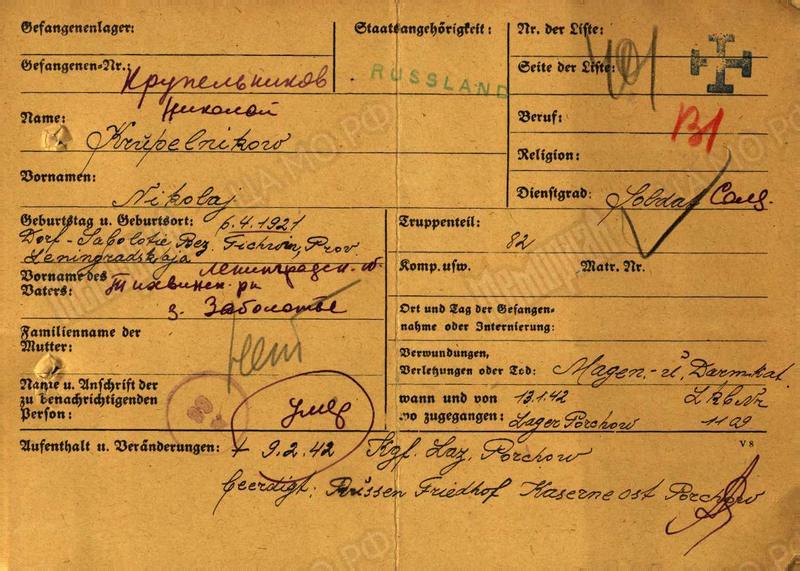 Gefangenenlager:
Staatsangehörigkeit:
Nr. der Liste:
Gefangenen-Nr.:
Крупельников
RUSSLAND
Seite der Liste:
Николой
Name:
Krŭpelnikow
Beruf:
B1
Religion:
Vornamen:
Nikolaj
Dienstgrad: Soldat Солд.
Geburtstag u. Geburtsort: 6.4.1921
Dorf-Sabolotie, Bez. Tichwin, Prov.
Leningradskaja
Truppenteil:
82
Vorname des Vaters:
Ленинградск-об
Тихвинск-рн
з. Заболотье
Komp. usw.
Matr. Nr.
Ort und Tag der Gefangen-
nahme oder Internierung:
Familienname der
Mutter:
Verwundungen,
Verletzungen oder Tod: Magen- ŭ. Darmkat.
Name u. Anschrift der
zu benachrichtigenden
Person:
умер
wann und von 13.1.42
wo zugegangen: Lager Porchow
1109
V 8
Aufenthalt u. Veränderungen: + 9.2.42 Kgf. Laz. Porchow
Beerdigt: Rŭssen Friedhof Kaserne ost Porchow